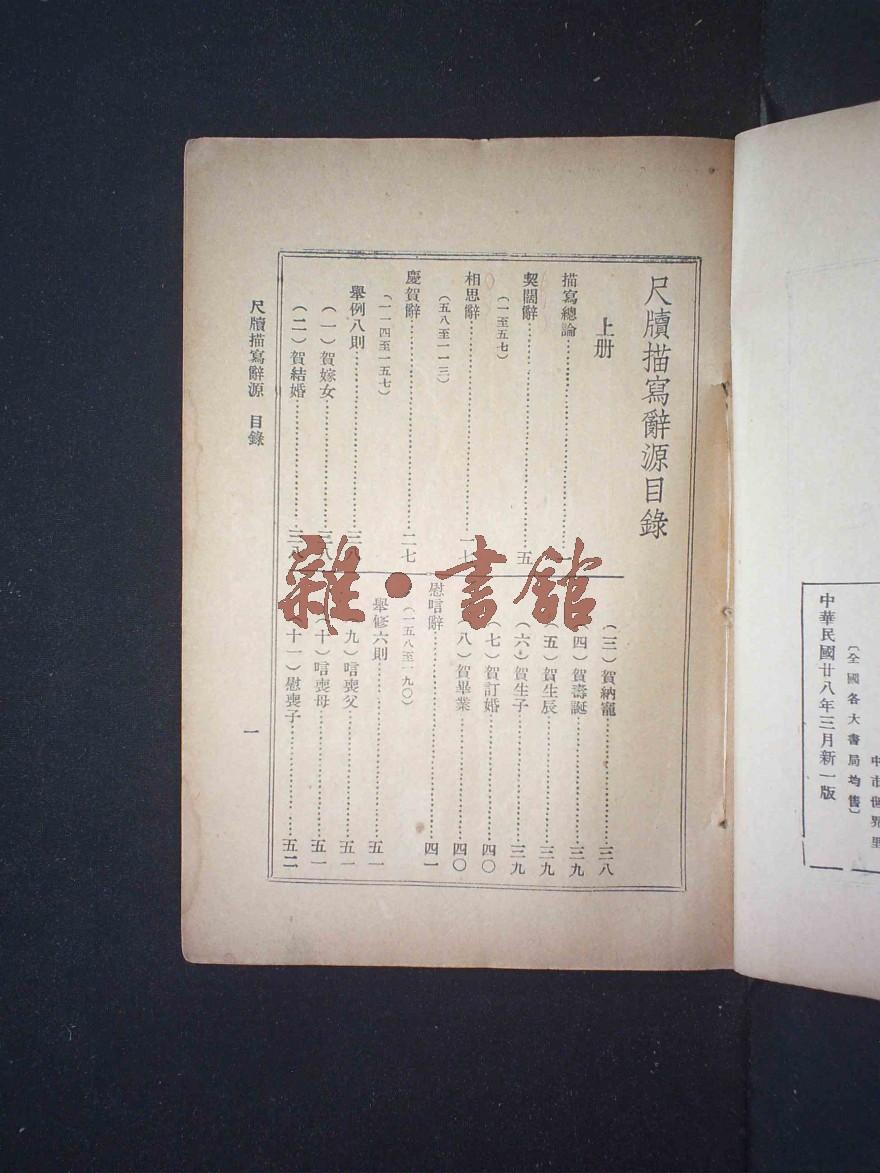 尺牘描寫辭源目錄
上册
描寫總論⋯⋯一
契闊辭⋯⋯五
(一至五七)
相思辭⋯⋯一七
(五八至一一三)
慶賀辭⋯⋯二七
(一一四至一五七)
舉例八則⋯⋯三八
(一)賀嫁女⋯⋯三八
(二)賀結婚⋯⋯三八
(三)賀納寵⋯⋯三八
(四)賀壽誕⋯⋯三九
(五)賀生辰⋯⋯三九
(六)賀生子⋯⋯三九
(七)賀訂婚⋯⋯四〇
(八)賀畢業⋯⋯四〇
慰唁辭⋯⋯四一
(一五八至一九〇)
舉修六則⋯⋯五一
(九)唁喪父⋯⋯五一
(十)唁喪母⋯⋯五一
(十一)慰喪子⋯⋯五二
尺牘描寫辭源 目錄
一
雜·書館
〔全國各大書局均售〕
中華民國廿八年三月新一版